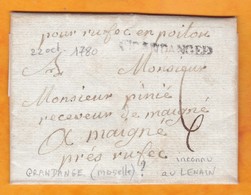 pour rufec en poitou
22 oct 1780
GRANDANGED
A Monsieur
Monsieur pinié
receveur de maigné
a maigné
près rufec
GRANDANGE (Moselle)?
inconnu
au LENAIN